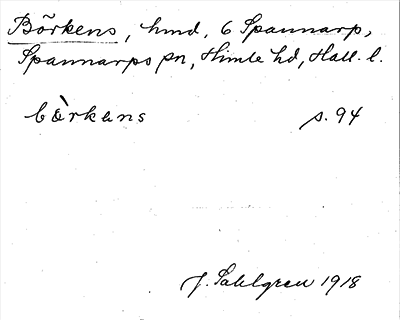 Börkens, hmd, 6 Spannarp,
Spannarps sn, Himle hd, Hall. l.
bö̀rkens s. 94
J. Sahlgren 1918